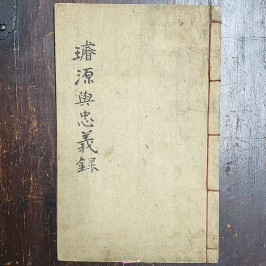 璿源與忠義錄